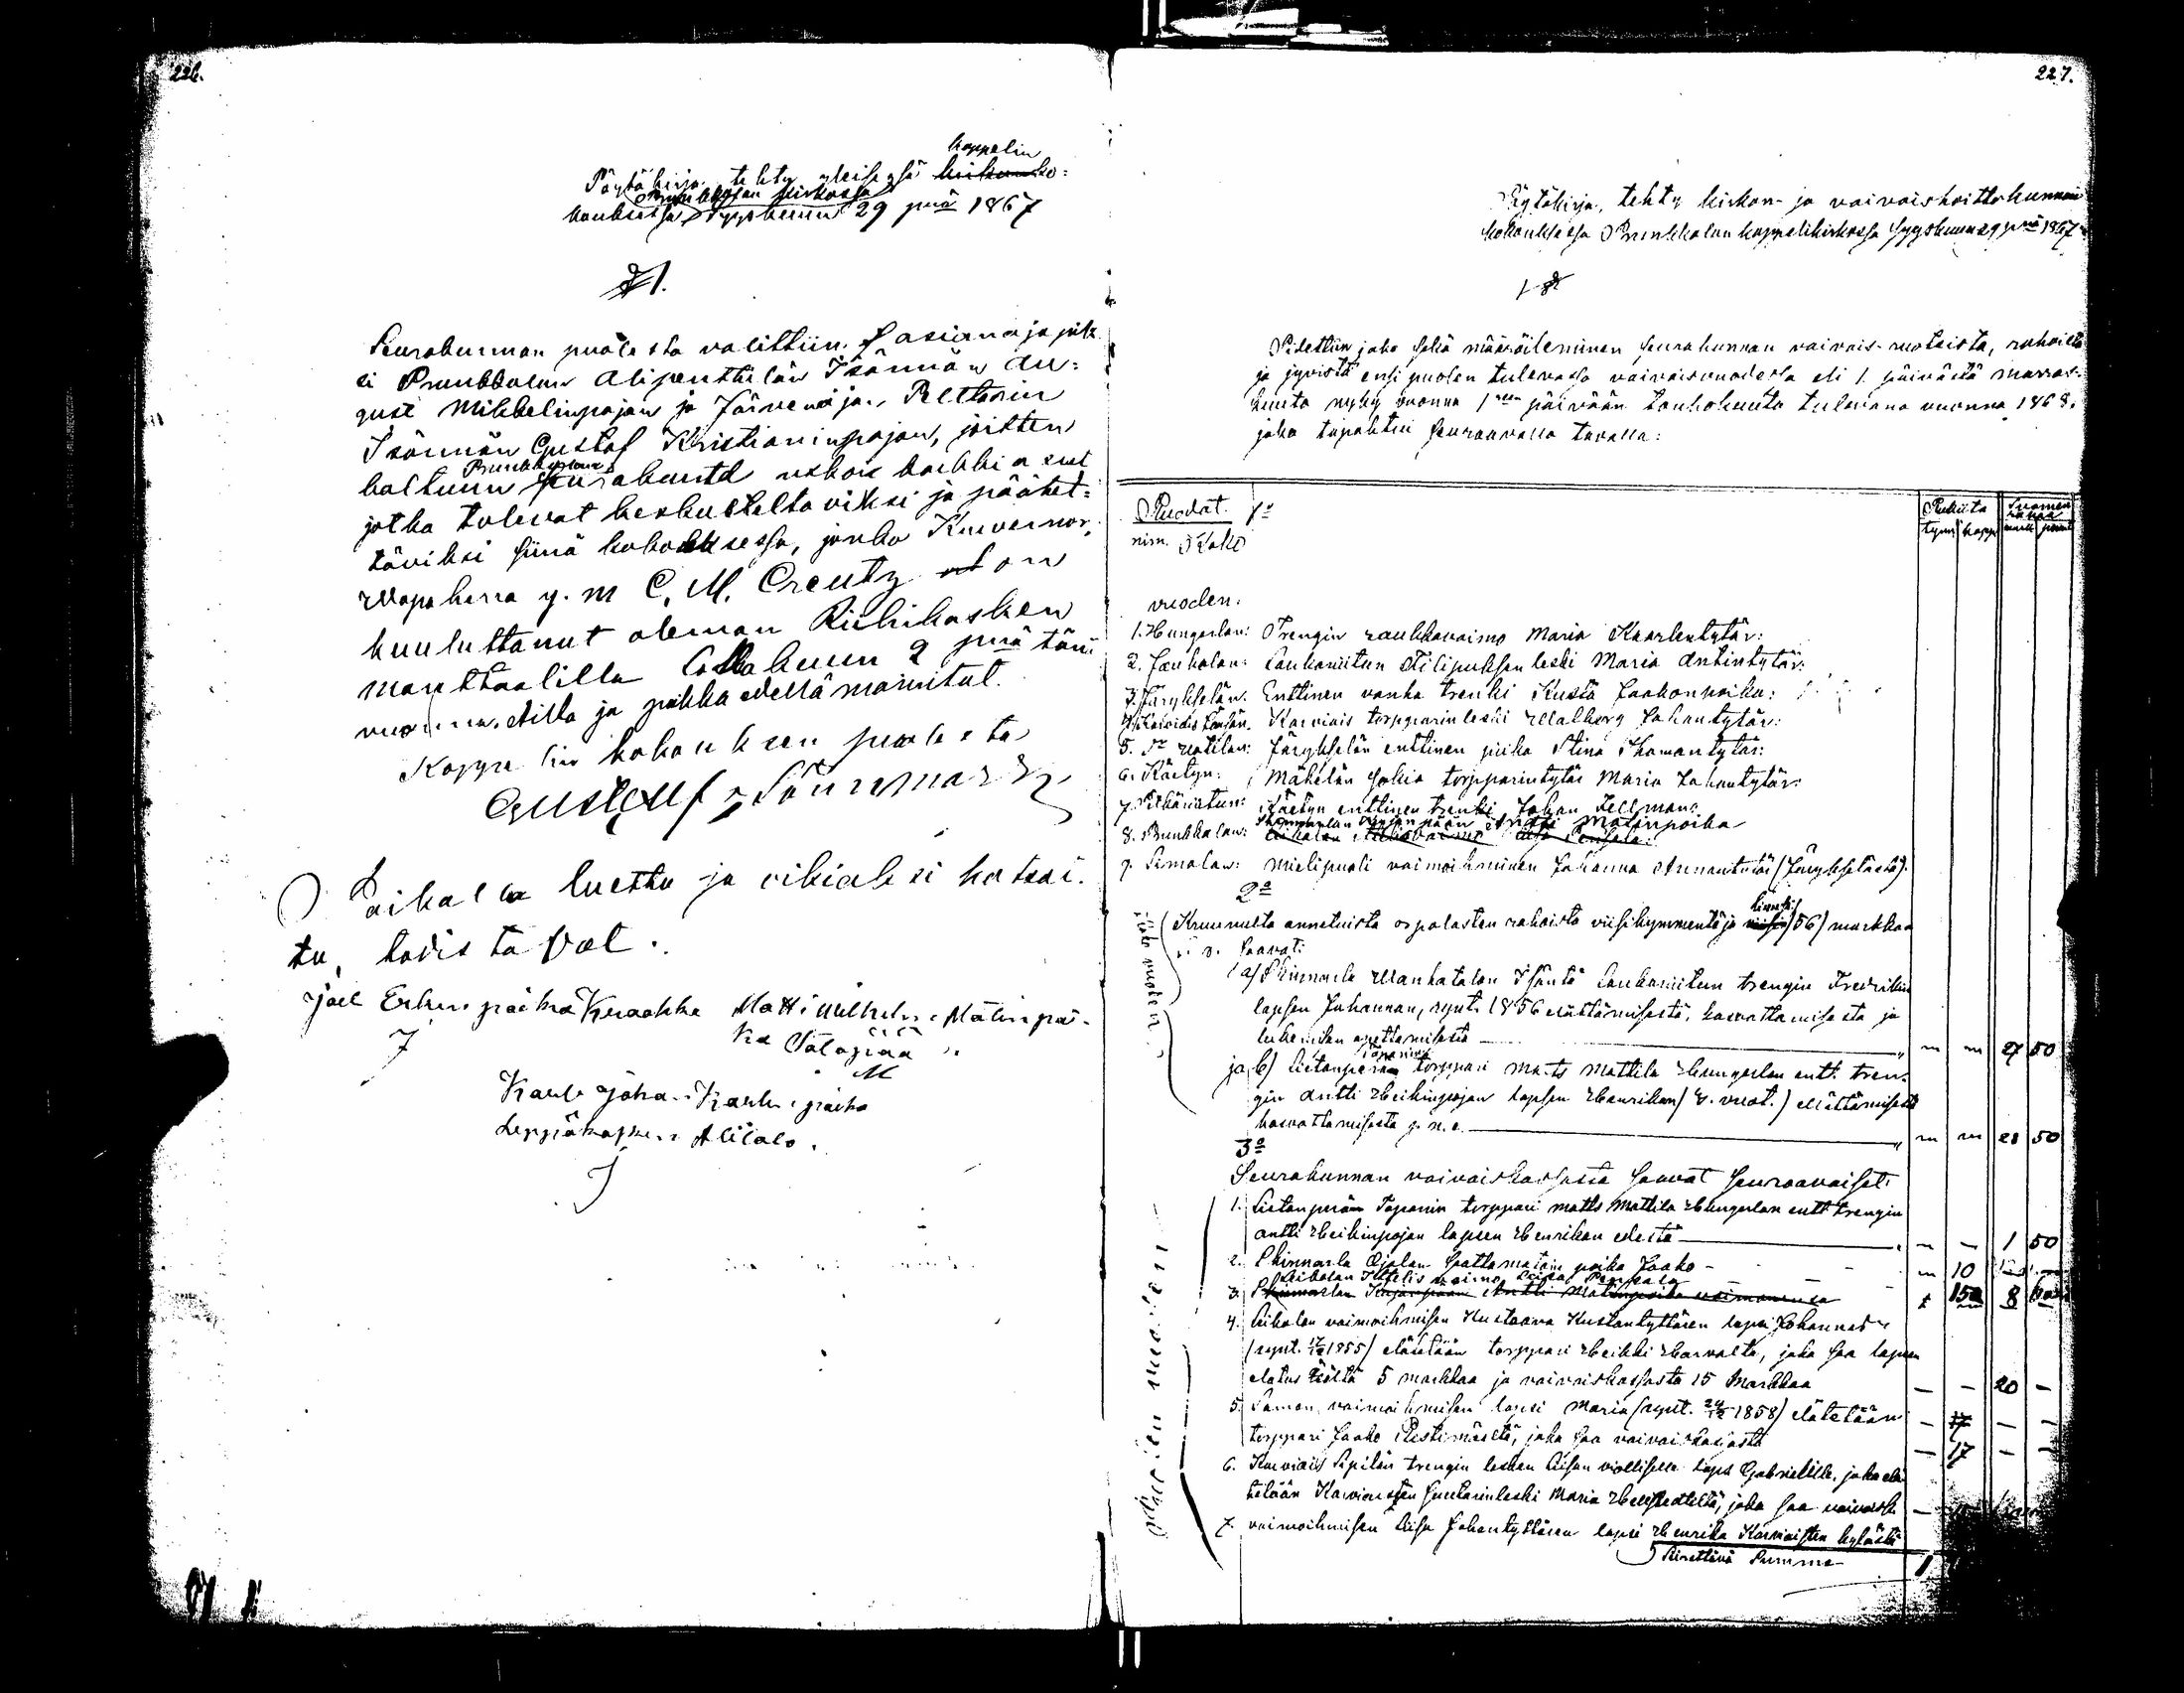 226.
kappelin
Pöytäkirja, tehty yleisessä kirkonko=
Prunkkalan kirkossa
kouksessa Syyskuun 29 pnä 1867
§ 1.
Seurakunnan puolesta valittiin asianajajik
si Prunkkalan Alipenttilän Isännän Au=
gust Mikkelinpojan ja Järvenojan Pelttarin
Isännän Gustaf Kristianinpojan, joitten
Prunkkalan
haltuun seurakunta uskoi kaikki asiat
jotka tulevat keskusteltaviksi ja päätet=
täviksi siinä kokouksessa, jonka Kuvernör,
Wapaherra y. m C. M. Creutz on
kuuluttanut oleman Riihikosken
manttaalilla Lokakuun 2 pnä tänä
vuonna. Aika ja paikka edellä mainitut.
Kappelin kokouksen puolesta
Gustaf Lönnmark
Paikalla luettu ja oikiaksi katsot.
tu, todistavat.
Joel Erkin poika Krookka Matti Wilhelm Matinpoi-
ka Talopää
M
Karl Joha. Karlinpoika
Leppäkosken Alitalo.
227.
Pöytäkirja, tehty kirkon- ja vaivaishoittokunnan
kokouksessa Prunkkalan kappelikirkossa Syyskuun 29 pnä 1867
1 §
Pidettiin jako sekä määräileminen seurakunnan vaivais-ruoteista, rahoista
ja jyvistä ensi puolen tulevassa vaivaisvuodessa eli 1. päivästä marras-
kuuta nyky vuonna 1sen päivään toukokuuta tulevana vuonna 1868,
joka tapahtui seuraavalla tavalla:
Ruodat. 1o
nim. Koko
Rukiita
Suomen rahaa
tynn kapp mark penni
vuoden.
1. Hungerlan: Trengin raukkavaimo Maria Kaarlentytär:
2. Laukolan: Laukaniitun Filipuksen leski Maria Antintytär:
3. Järykselän: Enttinen vanha trenki Kustä Jaakonpoika:
Karviais torpparin leski Walborg Johantytär:
5. Järykselän enttinen piika Stina Thomantytär:
6. Käetyn: Mäkelän sokia torpparintytär Maria Johantytär:
7. Pitkäniitun: Käetyn enttinen trenki Johan Sellman:
Antti Matinpoika
8. Prunkkalan:
9. Simolan: Mielipuoli vaimoihminen Johanna Annantytär (Järykselästä).
2o
kuusi
Kruunulta annetuista orpolasten rahoista viisikymmentä ja viisi (56) markkaa
saavat:
a) Kinnarla Wanhatalon Isäntä Laukaniitun trengin Fredrikin
lapsen Johannan, synt. 1856 elättämisestä, kasvattamisesta ja
lukemisen opettamisesta — " — — 27 50
Tapanin
ja b) Lietanperän torppari Matts Mattila Hungerlan entt. tren-
gin Antti Heikinpojan lapsen Henrikan (8. vuot.) elättämisestä
kasvattamisesta y. n. e. — " — — 28 50
3o
Seurakunnan vaivaiskassasta saavat seuraavaiset:
1. Lietanperän Tapanin torppari Matts Mattila Hungerlan entt trengin
Antti Heikinpojan lapsen Henrikan edestä — — — 1 50
2. Kinnarla Ojalan poika Jaako — — 10
3. Kinnarlan Antti Matinpoika 8
4. Leikolan vaimoihmisen Kustaava Kustantyttären lapsi Johannes
1855) elätetään torppari Heikki Harvalta, joka saa lapsen
elatus 5 markkaa ja vaivaiskassasta 15 Markkaa — — 20 —
5. Saman vaimoihmisen lapsi Maria (synt. 1858) elätetään — 17 — —
torppari Jaako Pestimäeltä, joka saa vaivaiskassasta — 17 — —
6. Karviais Sipilän trengin lesken Liisan viallisella lapsi Gabrielille, joka elä
tetään Karviaisten suutarinleski Maria joka saa vaivaisk
7. vaimoihmisen Liisa Johantyttären lapsi Henrika Karviaisten kylästä
Siirettävä Summa